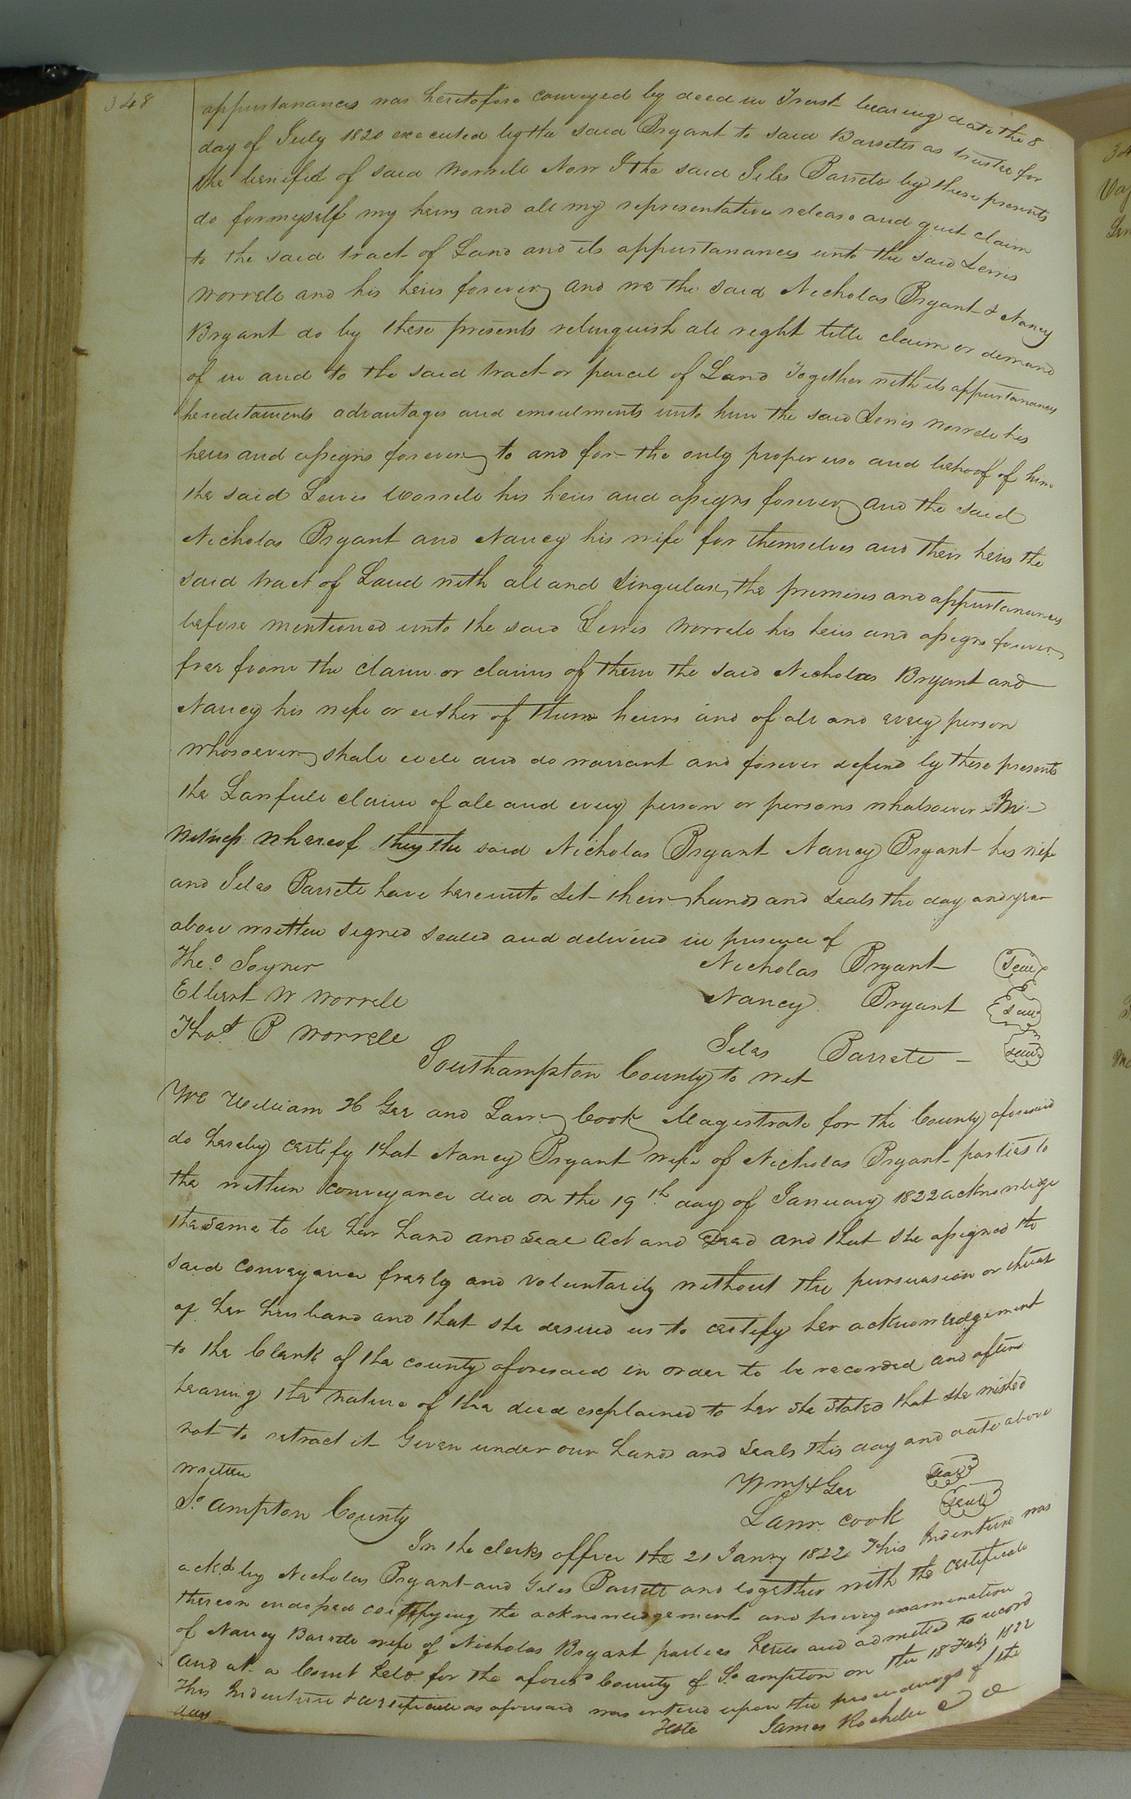 348
appurtanances was heretofore conveyed by deed in Trust bearing date the 8
day of July 1820 executed by the said Bryant to said Barrete as trustee for
the benifit of said Worrele Now I the said Jiles Barrete by these presents
do for myself my heirs and all my representatives release and quit claim
to the said tract of Land and its appurtanances unto the said Lewis
Worrele and his heirs forever and we the said Nicholas Bryant & Nancy
Bryant do by these presents relinquish all right title claim or demand
of in and to the said tract or parcel of Land Together with its appurtanances
heredetaments advantages and emoulments unto him the said Lewis Worrele his
heirs and assigns forever to and for the only proper use and behoof of him
the said Lewis Worrele his heirs and assigns forever and the said
Nicholas Bryant and Nancy his wife for themselves and their heirs the
said tract of Land with all and Singular, the premises and appurtanances
before mentioned unto the said Lewis Worrele his heirs and assigns forever
free from the claim or claims of them the said Nicholas Bryant and
Nancy his wife or either of them heirs and of all and every person
whosoever shall will and do warrant and forever defend by these presents
the Lawfull claim of all and every person or persons whatsoever In
witness whereof they the said Nicholas Bryant Nancy Bryant his wife
and Jiles Barrete have hereunto Set their hands and seals the day and year
above written signed sealed and delivered in presence of
Theo. Joyner
Nicholas Bryant Seal
Elbert W Worrele
Nancy Bryant Seal
Thos. P Worrele
Jiles Barrete Seal
Southampton County to wit
We William H Gee and Lawr. Cook Magistrate for the County aforesaid
do hereby certify that Nancy Bryant wife of Nicholas Bryant parties to
the within conveyance did on the 19th day of January 1822 acknowledge
the same to be her hand and seal Act and Deed and that she assigned the
said conveyance freely and voluntarily without the pursuasion or threat
of her husband and that she desired us to certify her acknowledgement
to the Clerk of the county aforesaid in order to be recorded and after
hearing the nature of the deed explained to her she stated that she wished
not to retract it Given under our hands and Seals this day and date above
written
Wm H Gee Seal
Lawr. Cook Seal
So. ampton County
In the clerks office the 21 Janry 1822 This Indenture was
ackd by Nicholas Bryant and Giles Barrett and together with the certificate
thereon endorsed certifying the acknowledgement and privy examination
of Nancy Barrete wife of Nicholas Bryant parties hereto and admitted to record
And at a Court held for the aforesd County of So. ampton on the 18 Feby 1822
This Indenture & certificate as aforesaid was entered upon the proceedings of the
day
Teste James Rochelle